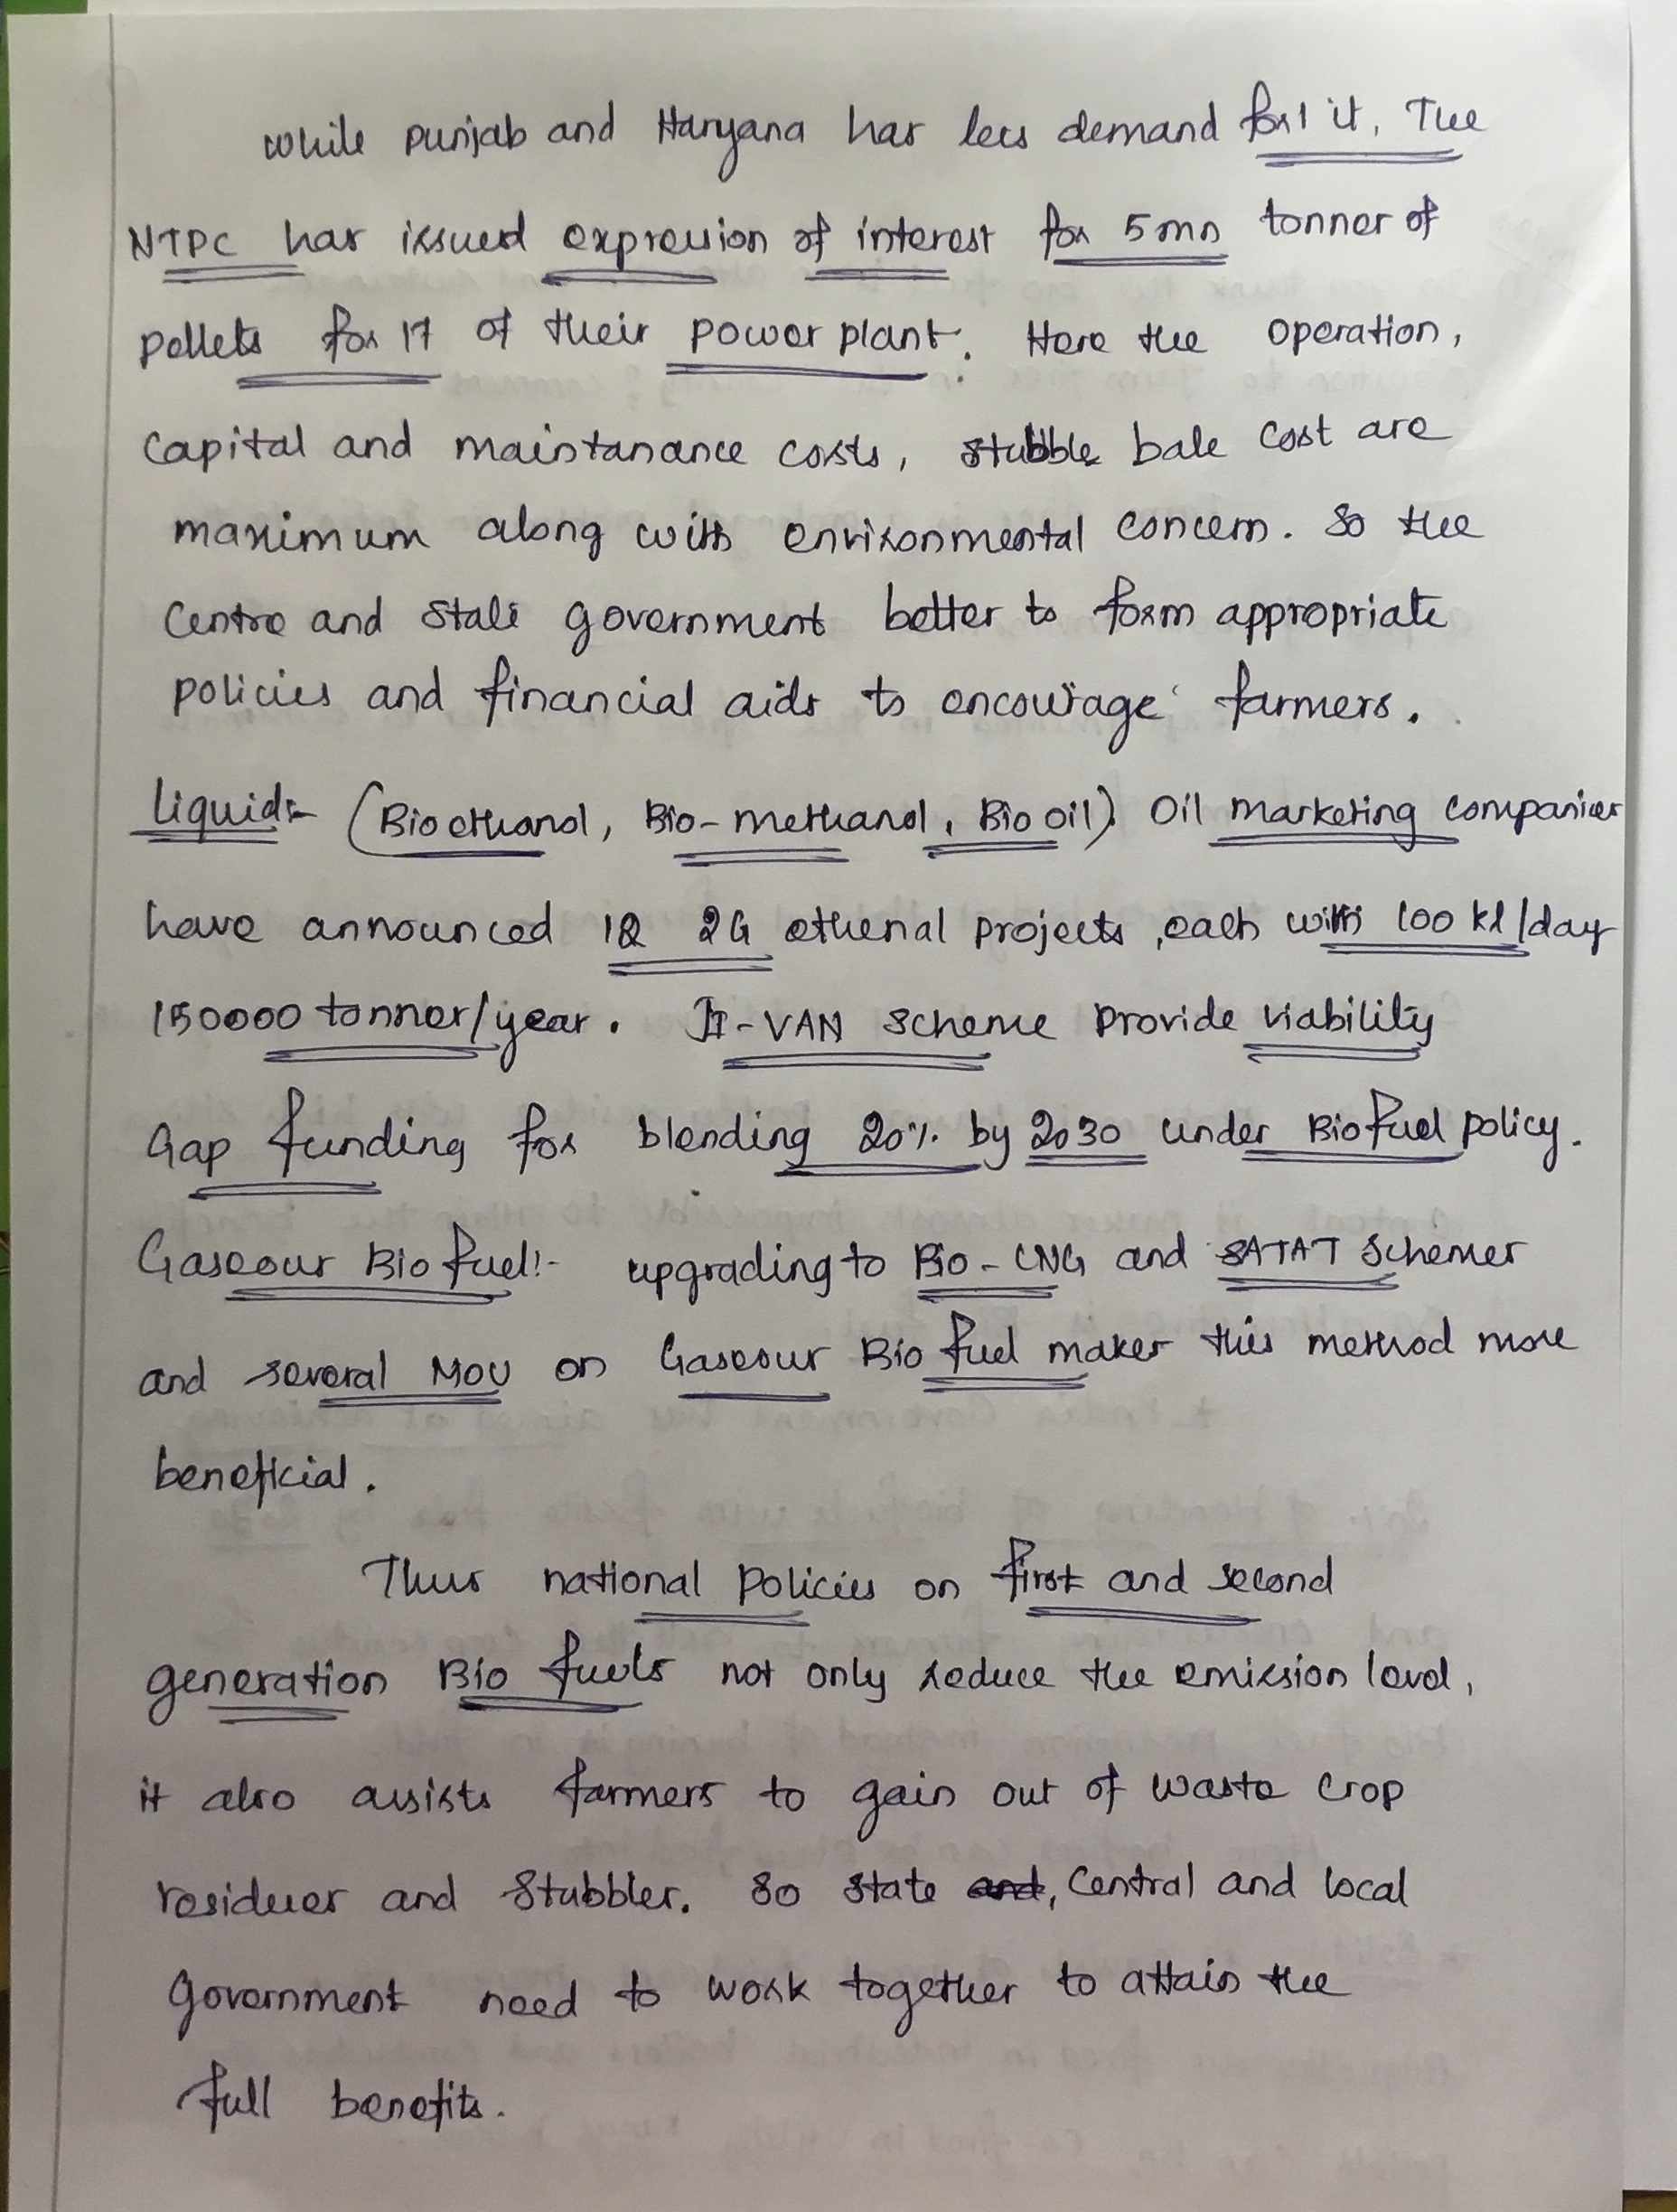 while punjab and Haryana has less demand for it. The
NTPC has issued expression of interest for 5mn tonnes of
pellets for 17 of their power plant. Here the operation,
Capital and maintanance costs, stubble bale cost are
maximum along with environmental concern. So the
Centre and state government better to form appropriate
policies and financial aids to encourage farmers.
Liquid:- (Bioethanol, Bio-methanol, Bio oil). Oil marketing companies
have announced 12 2G ethenal projects, each with 100 kl/day
150000 tonnes/year. JI-VAN scheme provide viability
Gap funding for blending 20% by 2030 under Biofuel policy.
Gaseous Bio fuel:- upgrading to Bio-CNG and SATAT schemes
and several MOU on Gaseous Bio fuel makes this method more
beneficial.
Thus national policies on first and second
generation Bio fuels not only reduce the emission level,
it also assists farmers to gain out of waste crop
residues and stubbles. So state and, Central and local
Government need to work together to attain the
full benefits.